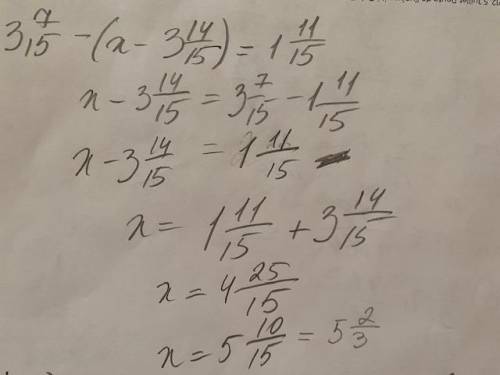 3 7/15 - (x - 3 14/15) = 1 11/15
x - 3 14/15 = 3 7/15 - 1 11/15
x - 3 14/15 = 1 11/15
x = 1 11/15 + 3 14/15
x = 4 25/15
x = 5 10/15 = 5 2/3